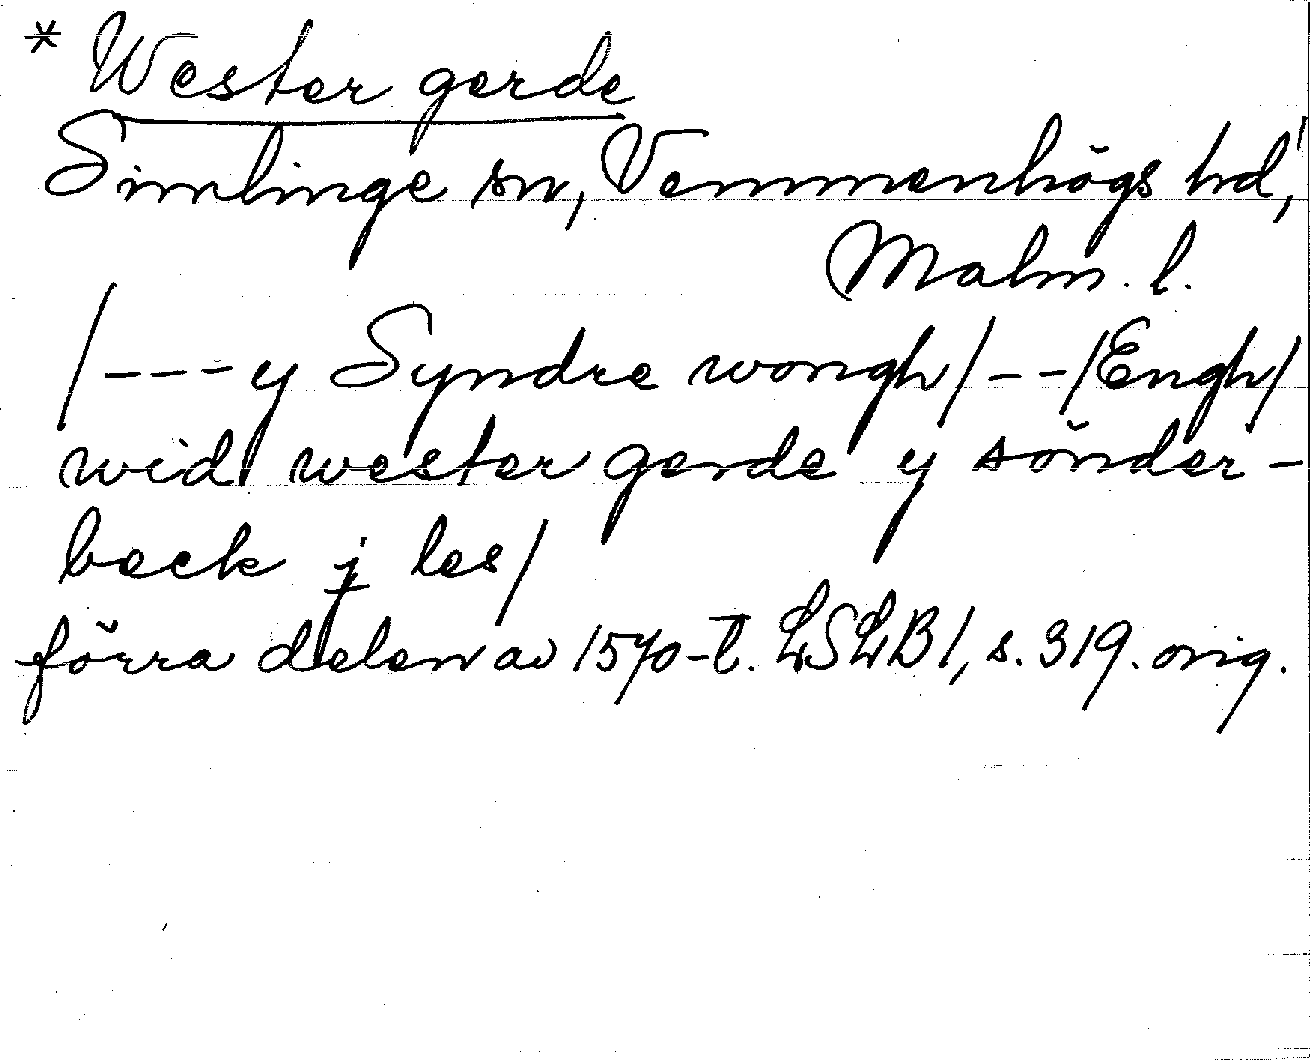 * Wester gerde
Simlinge sn, Vemmenhögs hd,
Malm. l.
/---y Syndre wongh/--/Engh/
wid wester gerde y sönder-
beck j les/
förra delen av 1570-t. LSLB 1, s. 319. orig.